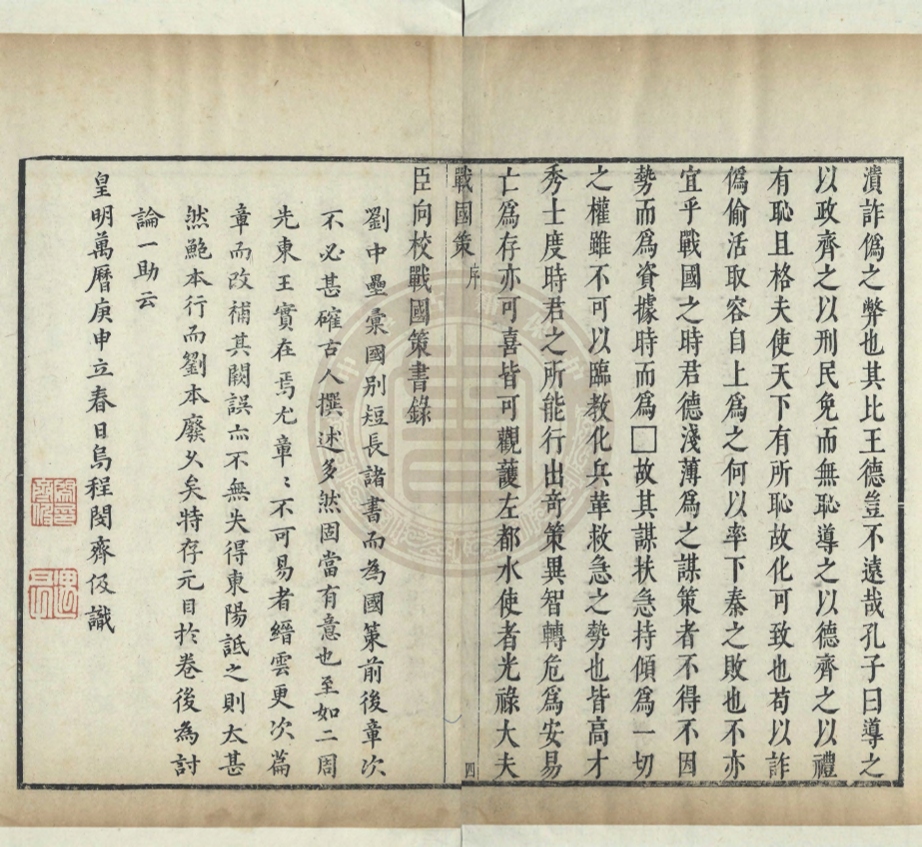 潰詐偽之弊也其比王德豈不遠哉孔子曰導之
以政齊之以刑民免而無恥導之以德齊之以禮
有恥且格夫使天下有所恥故化可致也苟以詐
偽偷活取容自上為之何以率下秦之敗也不亦
宜乎戰國之時君德淺薄為之謀策者不得不因
勢而為資據時而為□故其謀扶急持傾為一切
之權雖不可以臨教化兵革救急之勢也皆高才
秀士度時君之所能行出奇策異智轉危為安易
亡為存亦可喜皆可觀護左都水使者光祿大夫
戰國策 序 四
臣向校戰國策書錄
劉中壘彙國別短長諸書而為國策前後章次
不必甚確古人撰述多然固當有意也至如二周
先東王實在焉尤章〻不可易者縉雲更次篇
章而改補其闕誤亦不無失得東陽詆之則太甚
然鮑本行而劉本廢久矣特存元目於卷後為討
論一助云
皇明萬曆庚申立春日烏程閔齊伋識